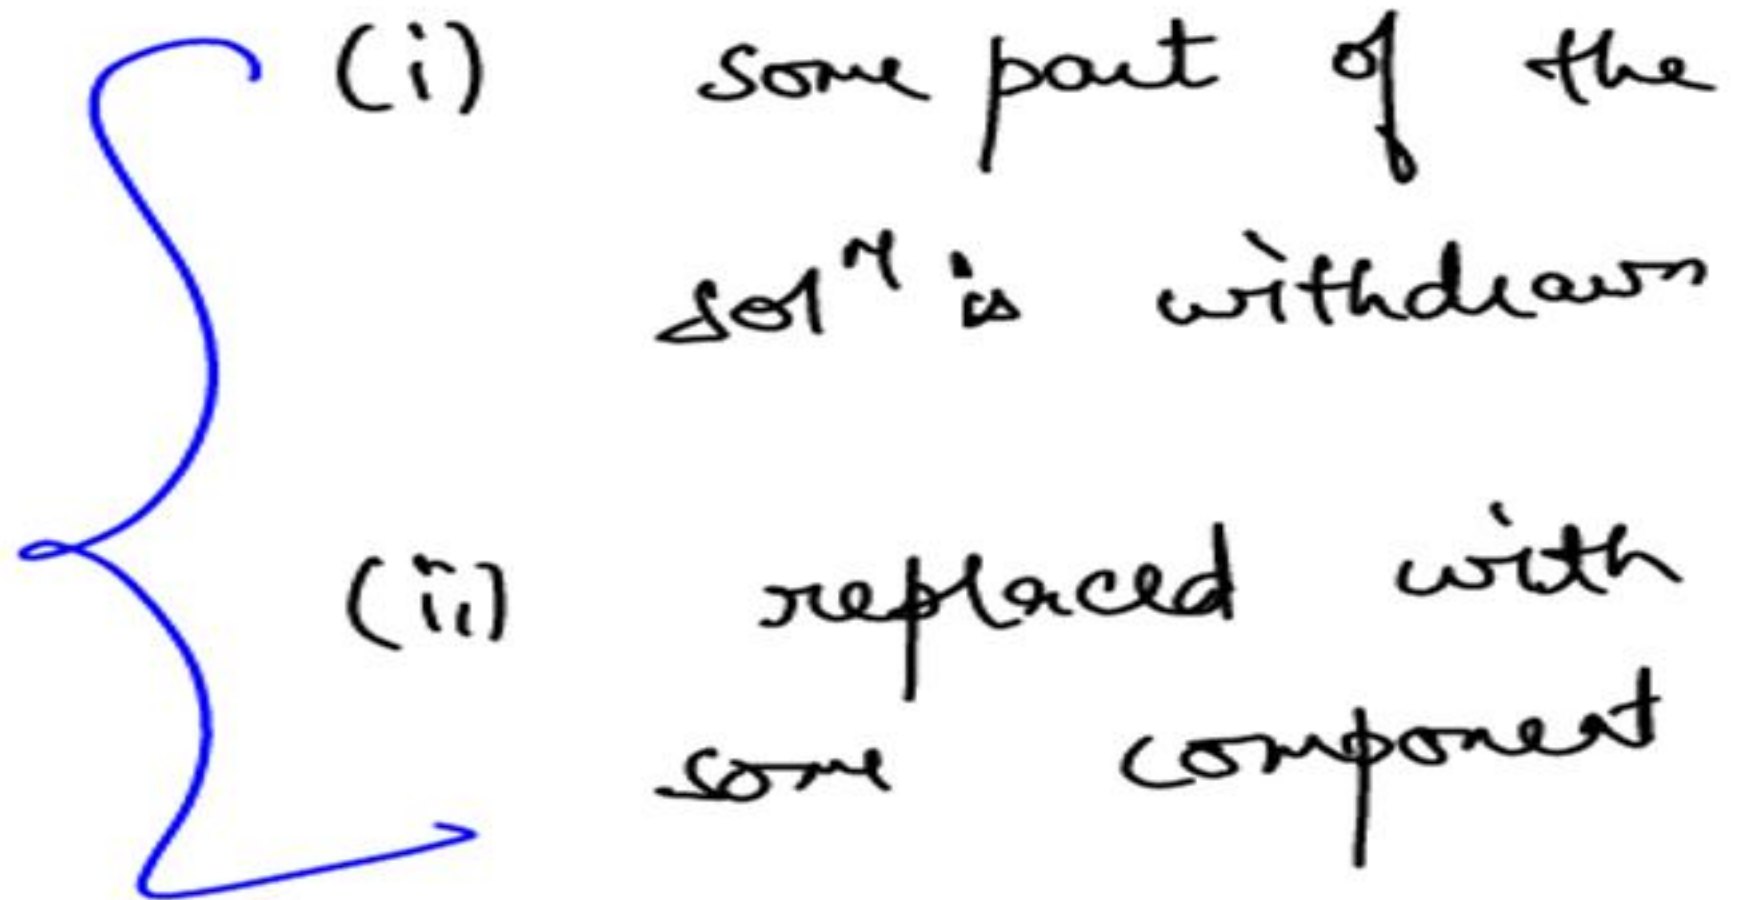 (i) some part of the
solⁿ is withdrawn
(ii) replaced with
some component